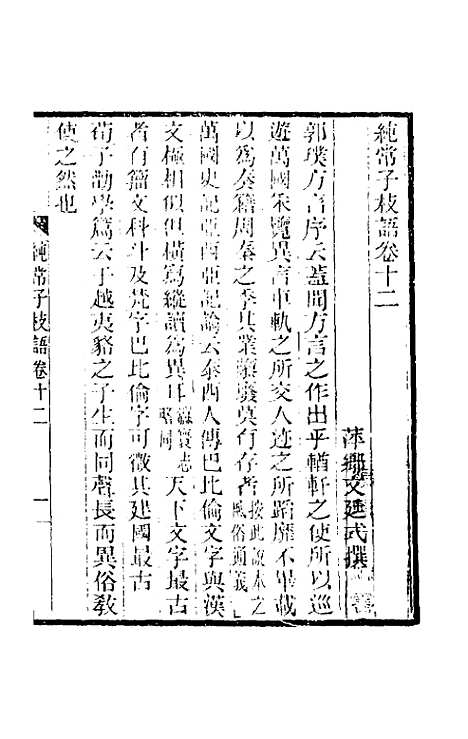 純常子枝語卷十二
萍鄉文廷式撰
郭璞方言序云蓋聞方言之作出乎輶軒之使所以巡
遊萬國采覽異言車軌之所交人迹之所蹈靡不畢載
以爲奏籍周秦之季其業隳廢莫有存者按此說本之風俗通義
萬國史記亞西亞記論云泰西人傳巴比倫文字與漢
文極相似但橫寫縱讀爲異耳瀛寰志略同天下文字最古
者有篇文科斗及梵字巴比倫字可徵其建國最古
荀子勸學篇云于越夷貉之子生而同聲長而異俗敎
使之然也
純常子枝語卷十二
一